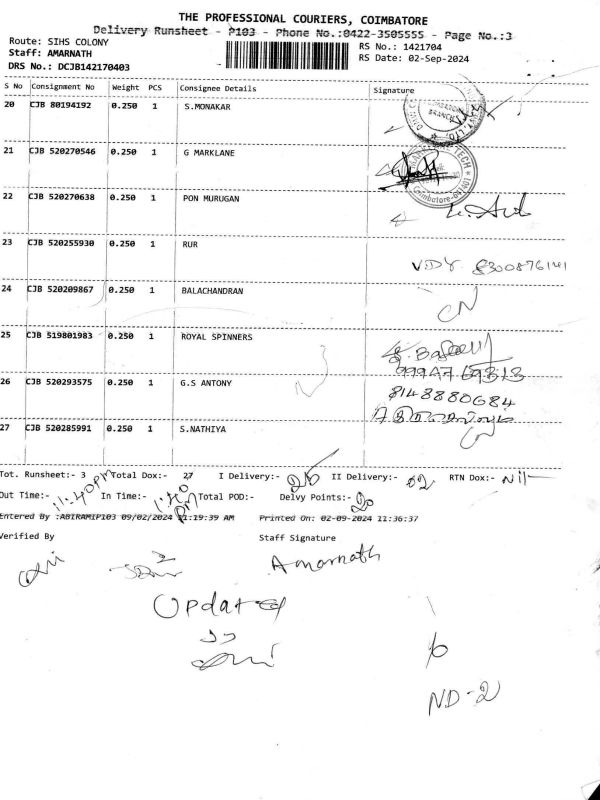 THE PROFESSIONAL COURIERS, COIMBATORE
Delivery Runsheet - P103 - Phone No.:0422-3505555 - Page No.:3
Route: SIHS COLONY
RS No.: 1421704
Staff: AMARNATH
RS Date: 02-Sep-2024
DRS No.: DCJB142170403
S No Consignment No Weight PCS Consignee Details Signature
20 CJB 80194192 0.250 1 S.MONAKAR
21 CJB 520270546 0.250 1 G MARKLANE
22 CJB 520270638 0.250 1 PON MURUGAN
23 CJB 520255930 0.250 1 RUR
8300876141
24 CJB 520209867 0.250 1 BALACHANDRAN
CN
25 CJB 519801983 0.250 1 ROYAL SPINNERS
26 CJB 520293575 0.250 1 G.S ANTONY
8148880684
27 CJB 520285991 0.250 1 S.NATHIYA
Tot. Runsheet:- 3 Total Dox:- 27 I Delivery:- 25 II Delivery:- 02 RTN Dox:- Nil
Out Time:- 11:40PM In Time:- 1:40 PM Total POD:- Delvy Points:- 20
Entered By :ABIRAMIP103 09/02/2024 11:19:39 AM Printed On: 02-09-2024 11:36:37
Verified By Staff Signature
Amarnath
Updated
ND-2